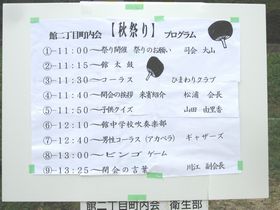 館二丁目町内会 【秋祭り】 プログラム
①-11:00～祭り開催 祭りのお願い 司会 大山
②-11:15～館太鼓
③-11:30～コーラス ひまわりクラブ
④-11:40～開会の挨拶 来賓紹介 松浦 会長
⑤-11:50～子供クイズ 山田 由里香
⑥-12:10～館中学校吹奏楽部
⑦-12:40～男性コーラス(アカペラ) ギャザーズ
⑧-13:00～ビンゴゲーム
⑨-13:25～閉会の言葉 川江 副会長
館二丁目町内会 衛生部